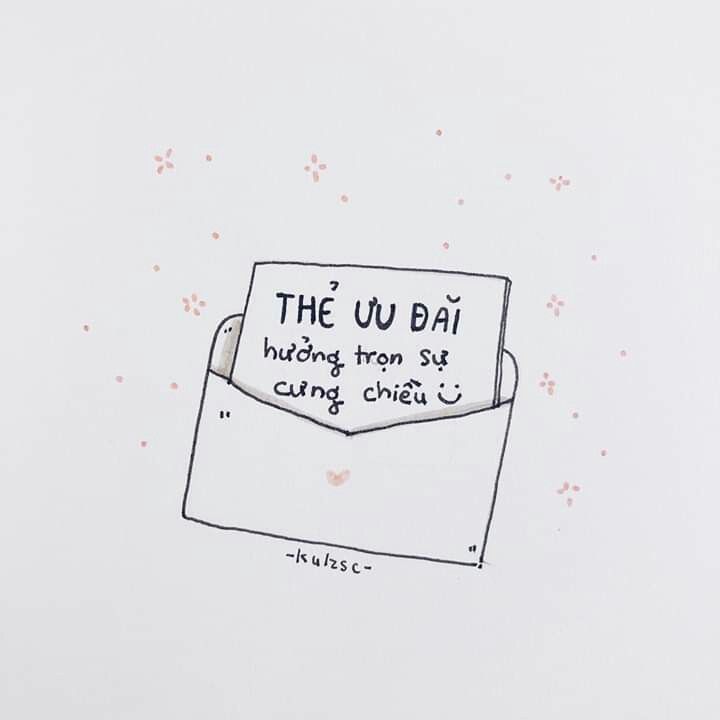 THẺ ƯU ĐÃI
hưởng trọn sự
cưng chiều :)
-kulzsc-